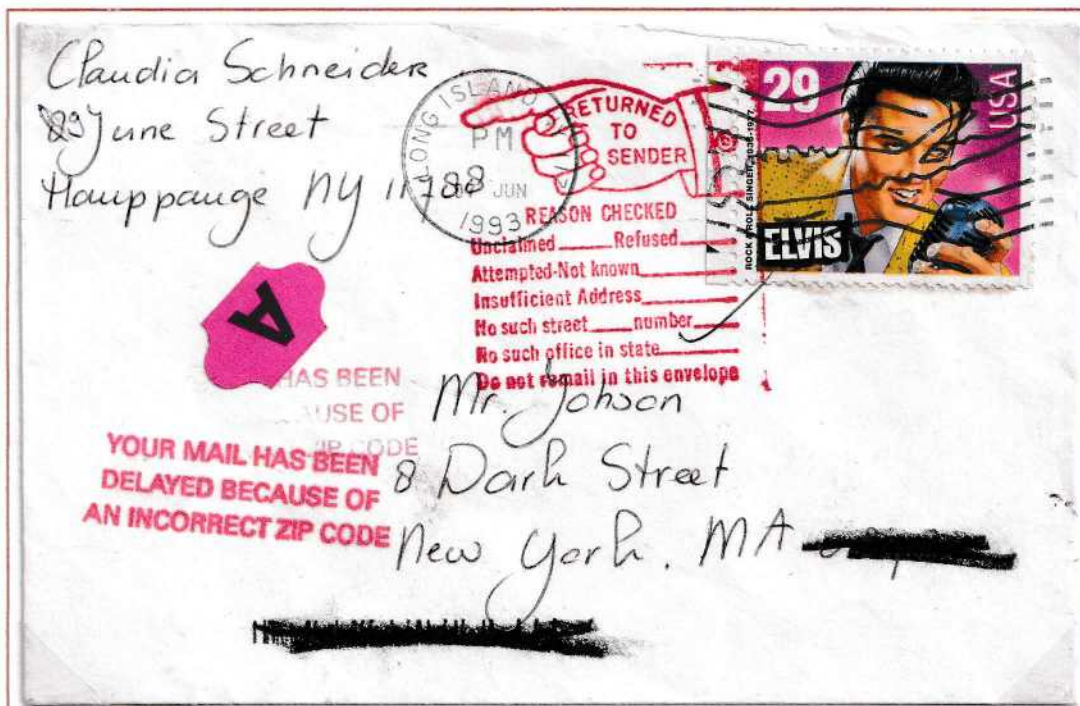 Claudia Schneider
89 June Street
Hauppauge NY 11788
LONG ISLAND
PM
JUN
1993
RETURNED
TO
SENDER
REASON CHECKED
Unclaimed Refused
Attempted-Not known
Insufficient Address
No such street number
No such office in state
Do not remail in this envelope
29
USA
ROCK & ROLL SINGER, 1935-1977
ELVIS
A
HAS BEEN
AUSE OF
ZIP CODE
YOUR MAIL HAS BEEN
DELAYED BECAUSE OF
AN INCORRECT ZIP CODE
Mr. Johson
8 Dark Street
New York, MA